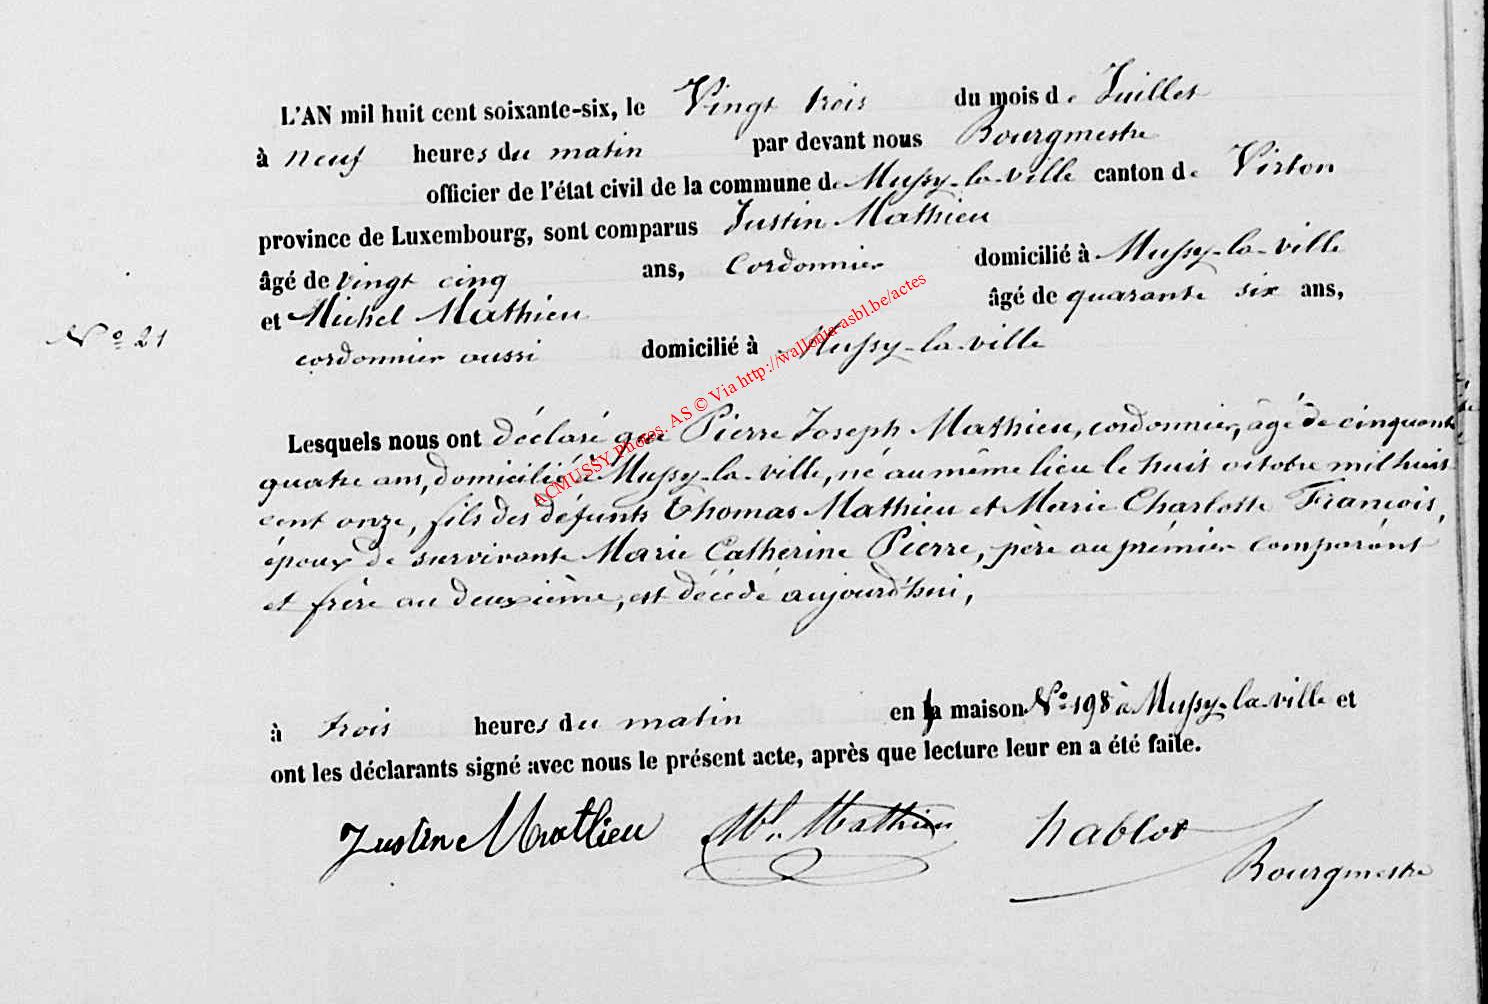 L'AN mil huit cent soixante-six, le Vingt trois du mois de Juillet
à neuf heures du matin par devant nous Bourgmestre
officier de l'état civil de la commune de Mussy-la-ville canton de Virton
province de Luxembourg, sont comparus Justin Mathieu
âgé de vingt cinq ans, Cordonnier domicilié à Mussy-la-ville
et Michel Mathieu âgé de quarante six ans,
N° 21
cordonnier aussi domicilié à Mussy-la-ville
Lesquels nous ont déclaré que Pierre Joseph Mathieu, cordonnier, âgé de cinquante
quatre ans, domicilié à Mussy-la-ville, né au même lieu le huit octobre mil huit
cent onze, fils des défunts Thomas Mathieu et Marie Charlotte François,
époux de survivante Marie Catherine Pierre, père au prémier comparant
et frère au deuxième, est décédé aujourd'hui,
à trois heures du matin en la maison N° 198 à Mussy-la-ville et
ont les déclarants signé avec nous le présent acte, après que lecture leur en a été faite.
Justin Mathieu Ml. Mathieu hablot
Bourgmestre
ACMUSSY Photos. AS © Via http://wallonia-asbl.be/actes